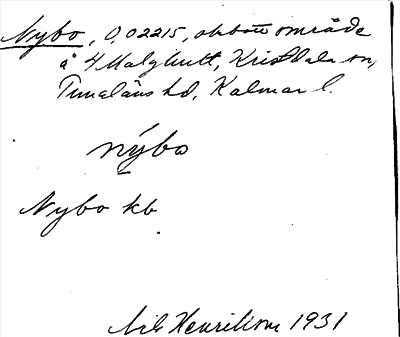 Nybo, 0,02215, obebott område
å 4 Malghult, Kristdala sn,
Tunaläns hd, Kalmar l.
nýbo
Nybo kb
Nils Henriksson 1931